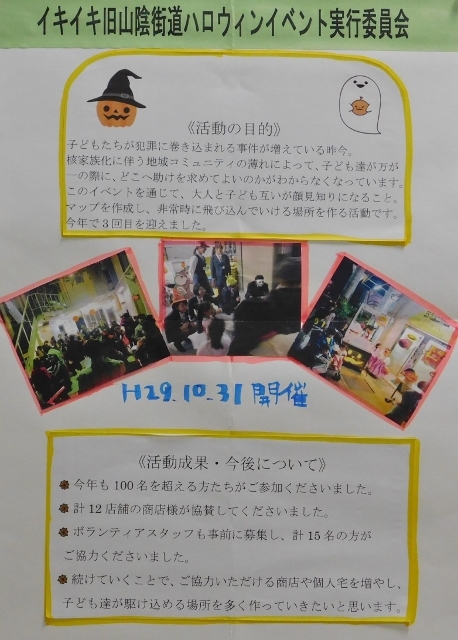 イキイキ旧山陰街道ハロウィンイベント実行委員会
《活動の目的》
子どもたちが犯罪に巻き込まれる事件が増えている昨今。
核家族化に伴う地域コミュニティの薄れによって、子ども達が万が
一の際に、どこへ助けを求めてよいのかがわからなくなっています。
このイベントを通じて、大人と子ども互いが顔見知りになること。
マップを作成し、非常時に飛び込んでいける場所を作る活動です。
今年で3回目を迎えました。
H29.10.31 開催
《活動成果・今後について》
今年も100名を超える方たちがご参加くださいました。
計12店舗の商店様が協賛してくださいました。
ボランティアスタッフも事前に募集し、計15名の方が
ご協力くださいました。
続けていくことで、ご協力いただける商店や個人宅を増やし、
子ども達が駆け込める場所を多く作っていきたいと思います。